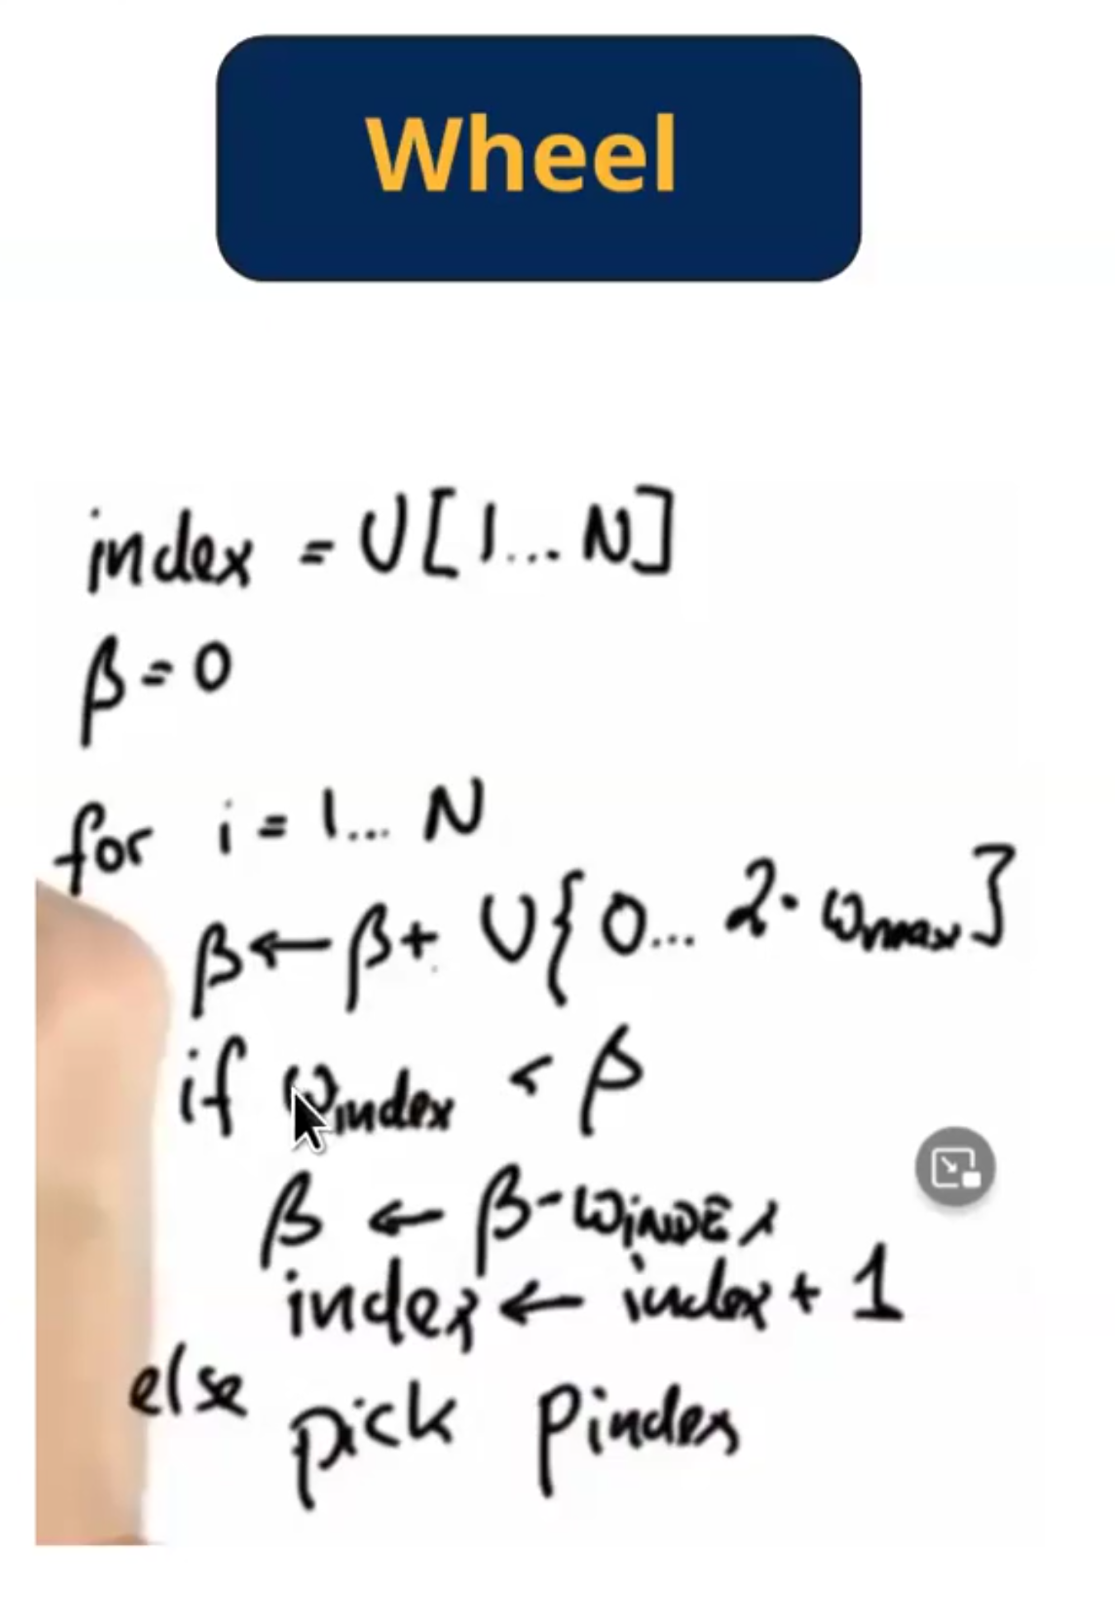 Wheel
index = U[1... N]
β = 0
for i = 1... N
β ← β + U{0... 2·ωmax}
if ωindex < β
β ← β - ωINDEX
index ← index + 1
else
pick Pindex